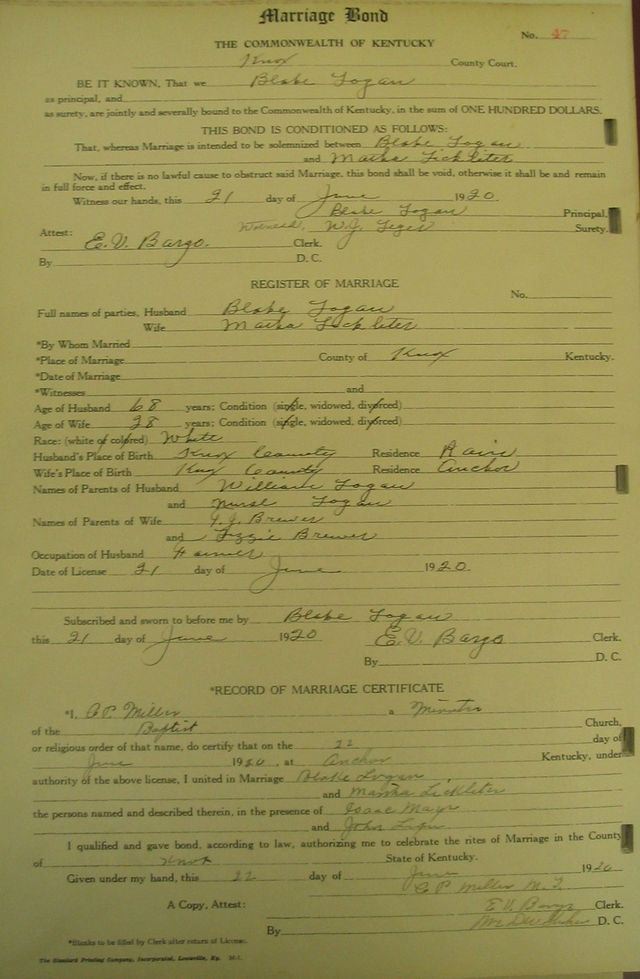 Marriage Bond
No. 47
THE COMMONWEALTH OF KENTUCKY
Knox County Court.
BE IT KNOWN, That we Blake Logan
as principal, and
as surety, are jointly and severally bound to the Commonwealth of Kentucky, in the sum of ONE HUNDRED DOLLARS.
THIS BOND IS CONDITIONED AS FOLLOWS:
That, whereas Marriage is intended to be solemnized between Blake Logan
and Martha Lickliter
Now, if there is no lawful cause to obstruct said Marriage, this bond shall be void, otherwise it shall be and remain
in full force and effect.
Witness our hands, this 21 day of June 1920
Blake Logan Principal,
Witness, W.J. Surety.
Attest: E.V. Bargo. Clerk.
By D. C.
REGISTER OF MARRIAGE
No.
Full names of parties, Husband Blake Logan
Wife Martha Lickliter
*By Whom Married
*Place of Marriage County of Knox Kentucky.
*Date of Marriage
*Witnesses and
Age of Husband 68 years; Condition (single, widowed, divorced)
Age of Wife 38 years; Condition (single, widowed, divorced)
Race: (white of colored) White
Husband's Place of Birth Knox County Residence
Wife's Place of Birth Knox County Residence Anchor
Names of Parents of Husband William Logan
and Logan
Names of Parents of Wife J.J. Brewer
and Lizzie Brewer
Occupation of Husband Farmer
Date of License 21 day of June 1920
Subscribed and sworn to before me by Blake Logan
this 21 day of June 1920 E.V. Bargo Clerk.
By D. C.
*RECORD OF MARRIAGE CERTIFICATE
*I, C.P. Miller a Minister
of the Baptist Church,
or religious order of that name, do certify that on the 22 day of
June 1920, at Anchor Kentucky, under
authority of the above license, I united in Marriage Blake Logan
and Martha Lickliter
the persons named and described therein, in the presence of Isaac Mays
and John
I qualified and gave bond, according to law, authorizing me to celebrate the rites of Marriage in the County
of Knox State of Kentucky.
Given under my hand, this 22 day of June 1920
C P Miller M.G.
A Copy, Attest: E.V. Bargo Clerk.
By D. C.
*Blanks to be filled by Clerk after return of License.
The Standard Printing Company, Incorporated, Louisville, Ky. M-1.